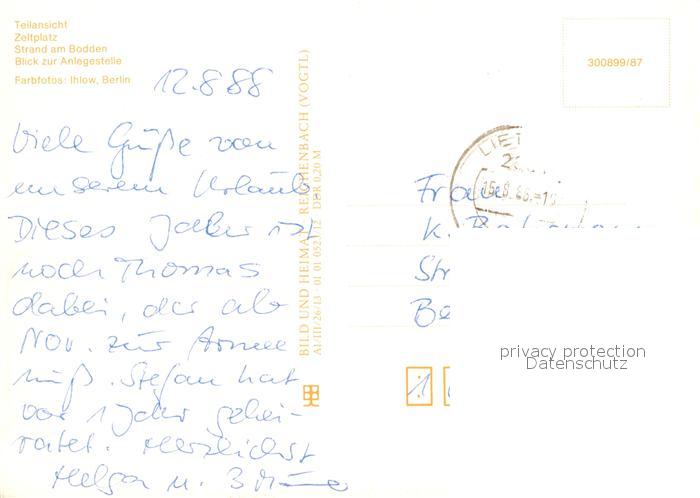 Teilansicht
Zeltplatz
Strand am Bodden
Blick zur Anlegestelle
Farbfotos: Ihlow, Berlin
12.8 88
Viele Grüße von
unserem Urlaub.
Dieses Jahr ist
noch Thomas
dabei, der ab
Nov. zur Armee
muß. Stefan hat
vor 1 Jahr gehei-
ratet. Herzlichst
Helga u.
BILD UND HEIMAT REICHENBACH (VOGTL)
A1/III/26/13 01 01 0521/12 DDR 0,20 M
300899/87
LIET
Frau
K.
Str
Be
1
privacy protection
Datenschutz